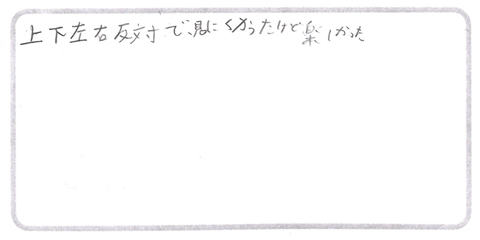 上下左右反対で見にくかったけど楽しかった